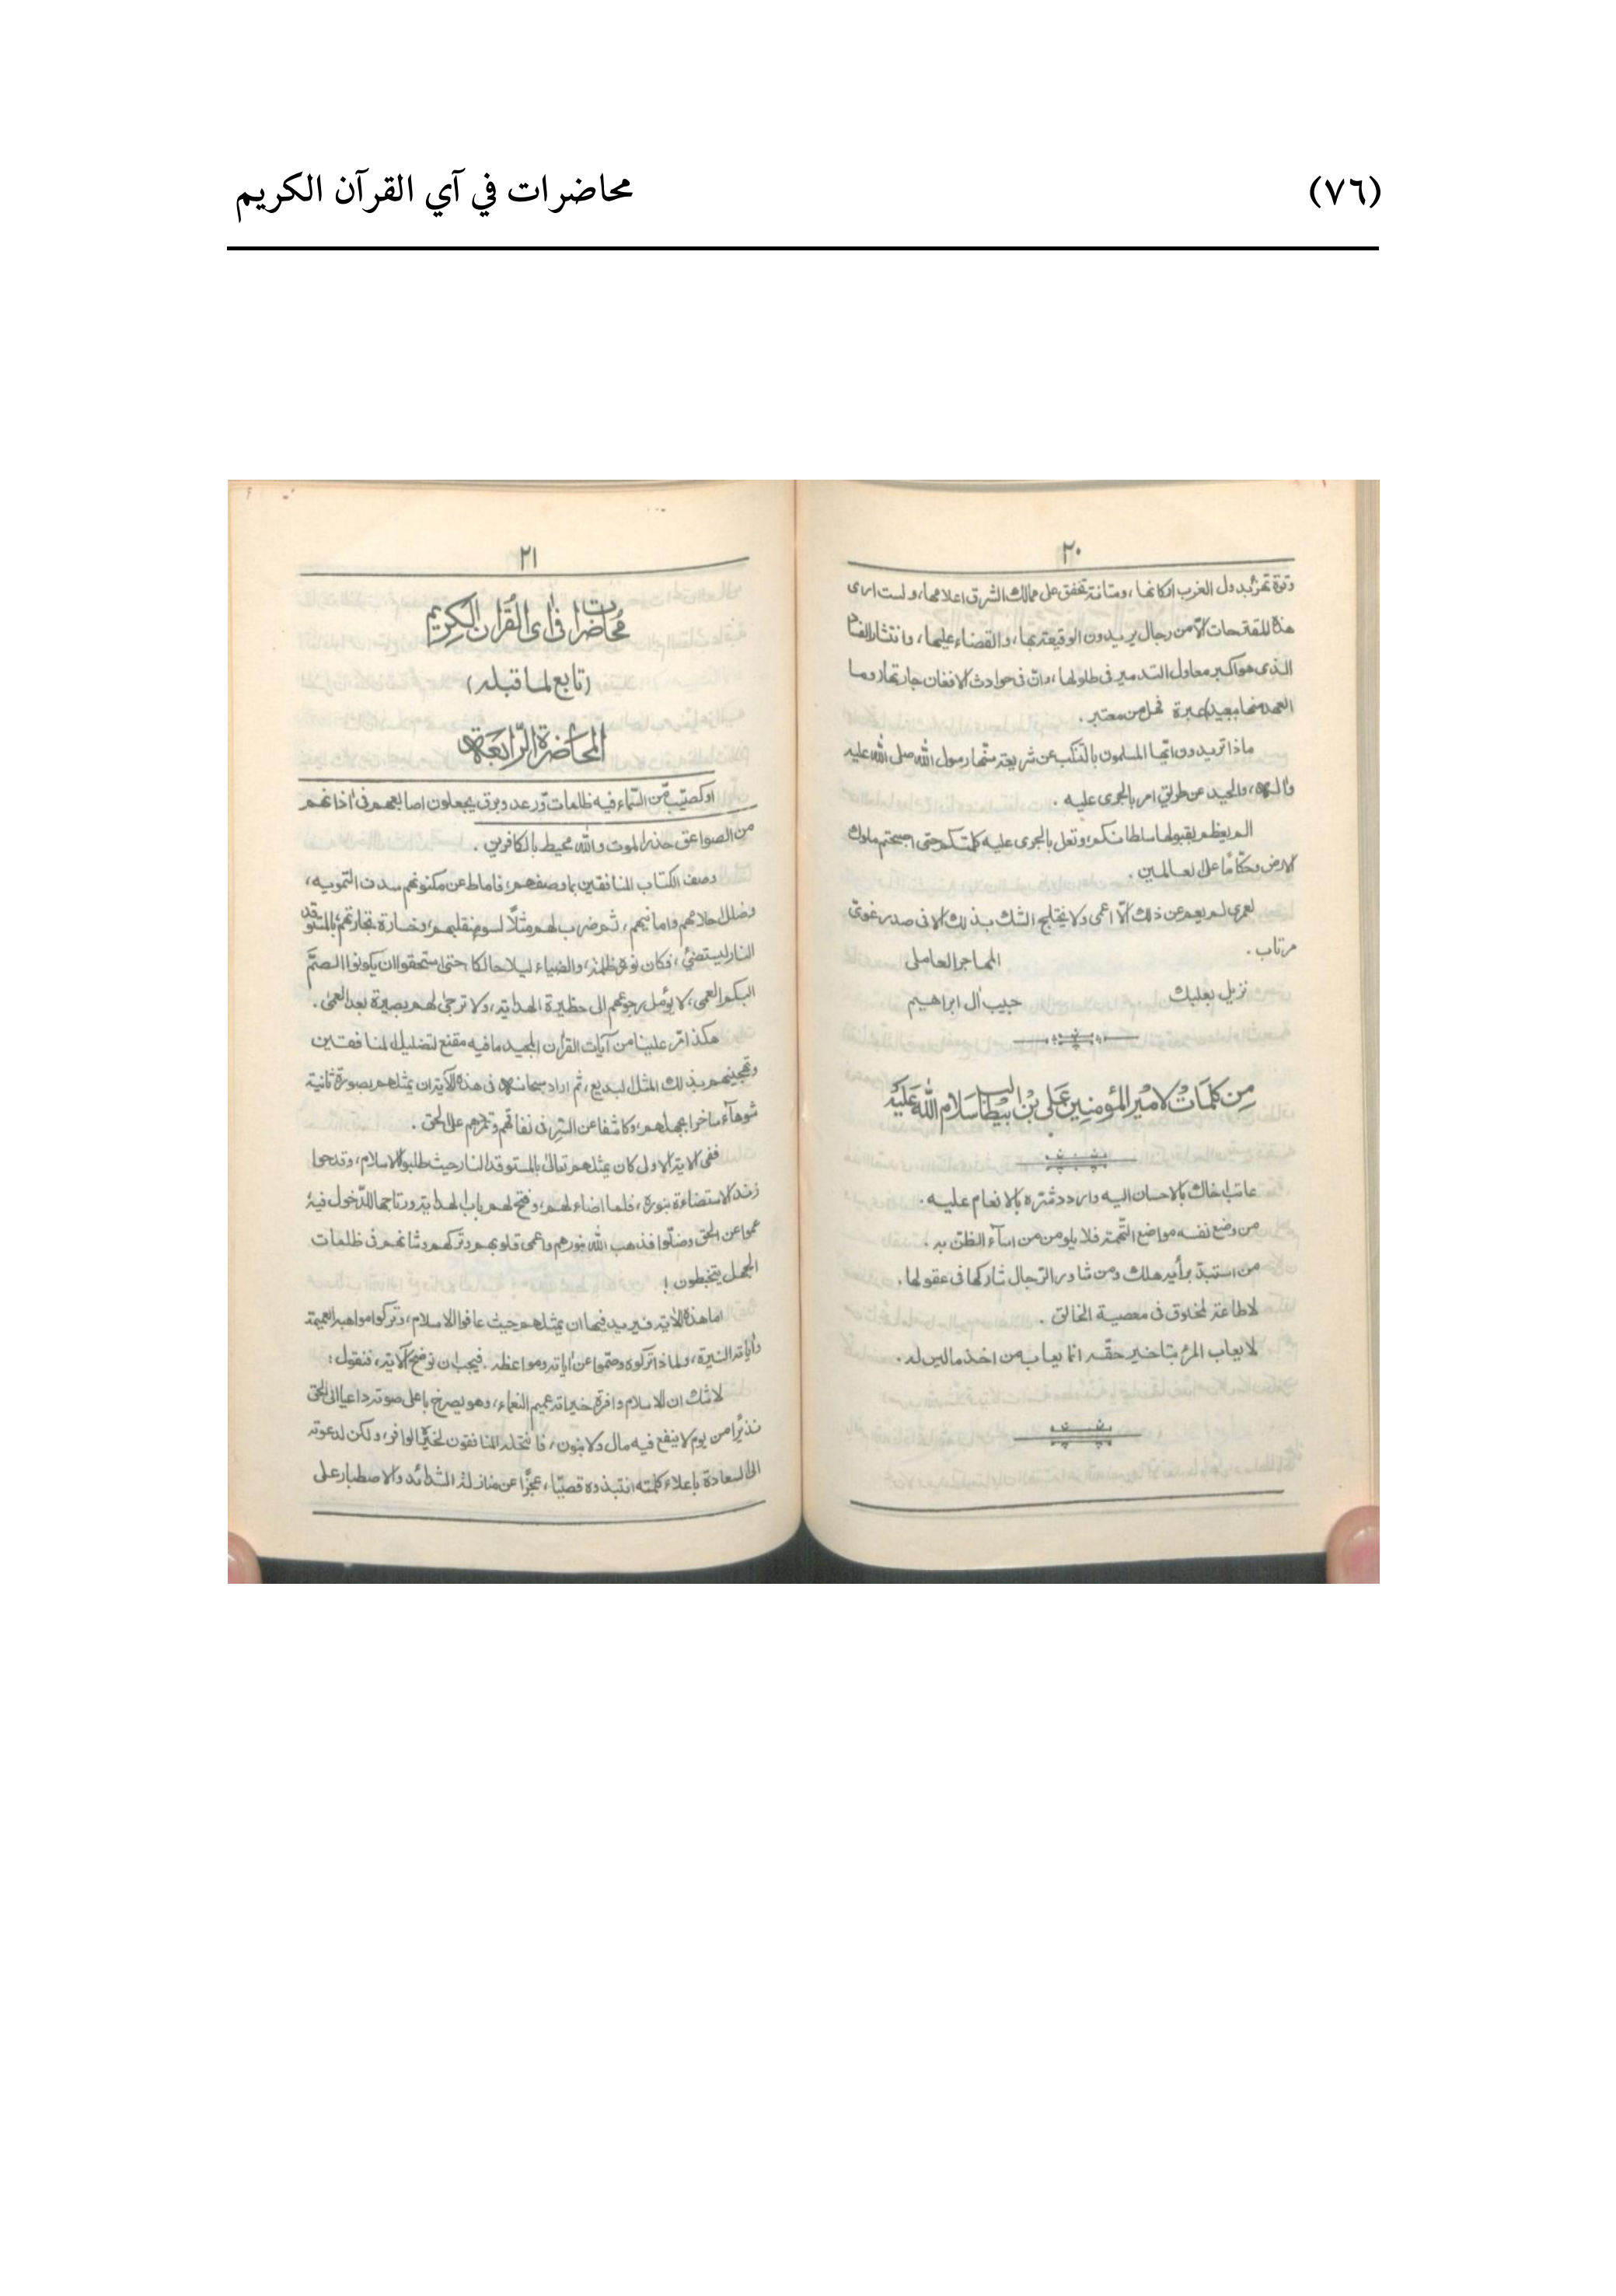 (٧٦)
محاضرات في آي القرآن الكريم
٢٠
وقوة تهز بدول الغرب اركانها، ومتانة تخفق على ممالك الشرق اعلامها، ولست ارى
هذه المقترحات الا من رجال يريدون الوقيعة بها، والقضاء عليها، وانتشار
الذى هو اكبر معاول التدمير فى طلولها، وان فى حوادث الافغان جارتها (وما
العهد منها ببعيد) عبرة فهل من معتبر.
ماذا تريدون ايها المسلمون بالتنكب عن شريعة سنها رسول الله صلى الله عليه
وآله، والحيد عن طريق امر بالجرى عليه.
الم يعظم بقبولها سلطانكم، وتعل بالجرى عليه كلمتكم حتى اصبحتم ملوك
الارض وحكاما على العالمين.
لعمرى لم يعم عن ذلك الا اعمى ولا يختلج الشك بذلك الا فى صدر غوى
مرتاب.
المهاجر العاملى
نزيل بعلبك
حبيب آل ابراهيم
من كلمات لامير المؤمنين على بن ابيطالب سلام الله عليه
عاتب اخاك بالاحسان اليه واردد شره بالانعام عليه.
من وضع نفسه مواضع التهمة فلا يلومن من اسآء الظن به.
من استبد برأيه هلك ومن شاور الرجال شاركها فى عقولها.
لا طاعة لمخلوق فى معصية الخالق.
لا يعاب المرء بتاخير حقه انما يعاب من اخذ ما ليس له.
٢١
محاضرات فى آى القرآن الكريم
(تابع لما قبله)
المحاضرة الرابعة
او كصيب من السماء فيه ظلمات ورعد وبرق يجعلون اصابعهم فى آذانهم
من الصواعق حذر الموت والله محيط بالكافرين.
وصف الكتاب المنافقين بما وصفهم، فاماط عن مكنونهم سدف التمويه،
وضلل احلامهم وامانيهم، ثم ضرب لهم مثلا لسوء منقلبهم، وخسارة تجارتهم، بالمستوقد
النار ليستضئ، فكان نوره ظلمة، والضياء ليلا حالكا حتى استحقوا ان يكونوا الصم
البكم العمى، لا يؤمل رجوعهم الى حظيرة الهداية، ولا ترجى لهم بصيرة بعد العمى.
هكذا مر علينا من آيات القرآن المجيد ما فيه مقنع لتضليل المنافقين
وتهجينهم بذلك المثل البديع، ثم اراد سبحانه فى هذه الآية ان يمثلهم بصورة ثانية
شوهآء ساخرا بجهلهم، وكاشفا عن السر فى نفاقهم وتمردهم على الحق.
ففى الاية الاولى كان يمثلهم تعالى بالمستوقد النار حيث طلبوا الاسلام، وقدحوا
زند الاستضاءة بنوره، فلما اضاء لهم، وفتح لهم باب الهداية ورتاجها للدخول فيه
عموا عن الحق وضلوا فذهب الله بنورهم واعمى قلوبهم وتركهم وشانهم فى ظلمات
الجهل يتخبطون!
اما هذه الآية فيريد فيها ان يمثلهم حيث عافوا الاسلام، وتركوا مواهبه العميمة
وآياته النيرة، ولماذا تركوه وصموا عن آياته ومواعظه. فيجب ان نوضح الآية، فنقول:
لا شك ان للاسلام وافرة خيراته عميم النعماء، وهو يصرخ باعلى صوته داعيا الى الحق
نذيرا من يوم لا ينفع فيه مال ولا بنون، فانتحله المنافقون لخيره الوافر، ولكن لدعوته
الى السعادة باعلاء كلمته انتبذوه قصيا، عجزا عن منازلة الشدائد والاصطبار على